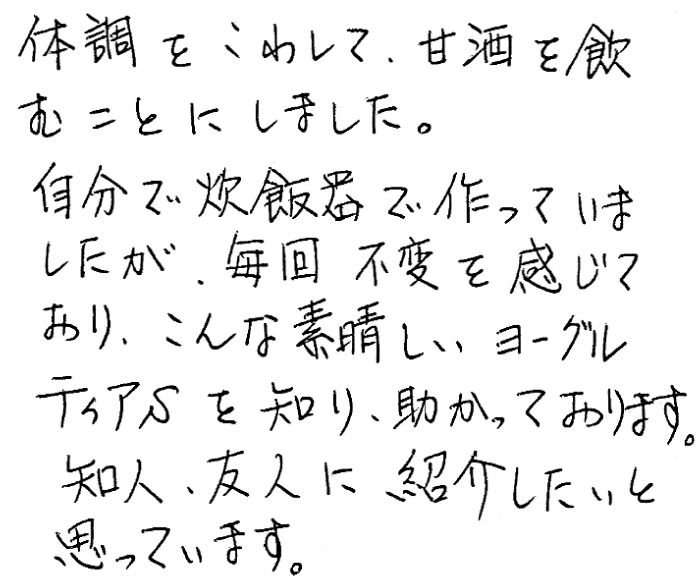 体調をこわして、甘酒を飲
むことにしました。
自分で炊飯器で作っていま
したが、毎回不変を感じて
おり、こんな素晴しいヨーグル
ティアSを知り、助かっております。
知人、友人に紹介したいと
思っています。